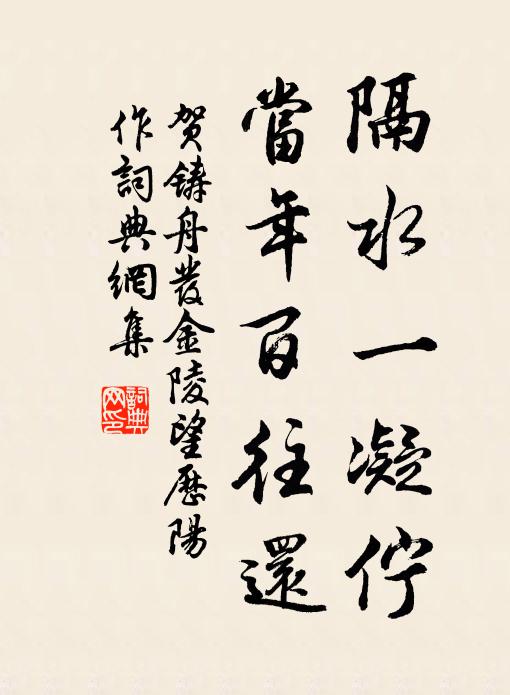 隔水一凝佇
當年百往還
賀鑄舟發金陵望歷陽
作詞典網集
詞典
网印